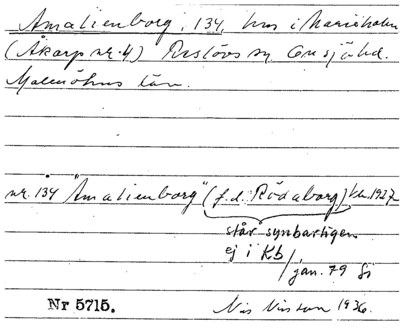 Amalienborg, 134, hus i Marieholm
(Åkarp nr. 4) Reslövs sn. Onsjö hd.
Malmöhus län.
nr. 134 "Amalienborg" (f.d. Rödaborg) 1927
står synbarligen
ej i Kb
/jan. 79
Nr 5715.
Nils Nilsson 1936.